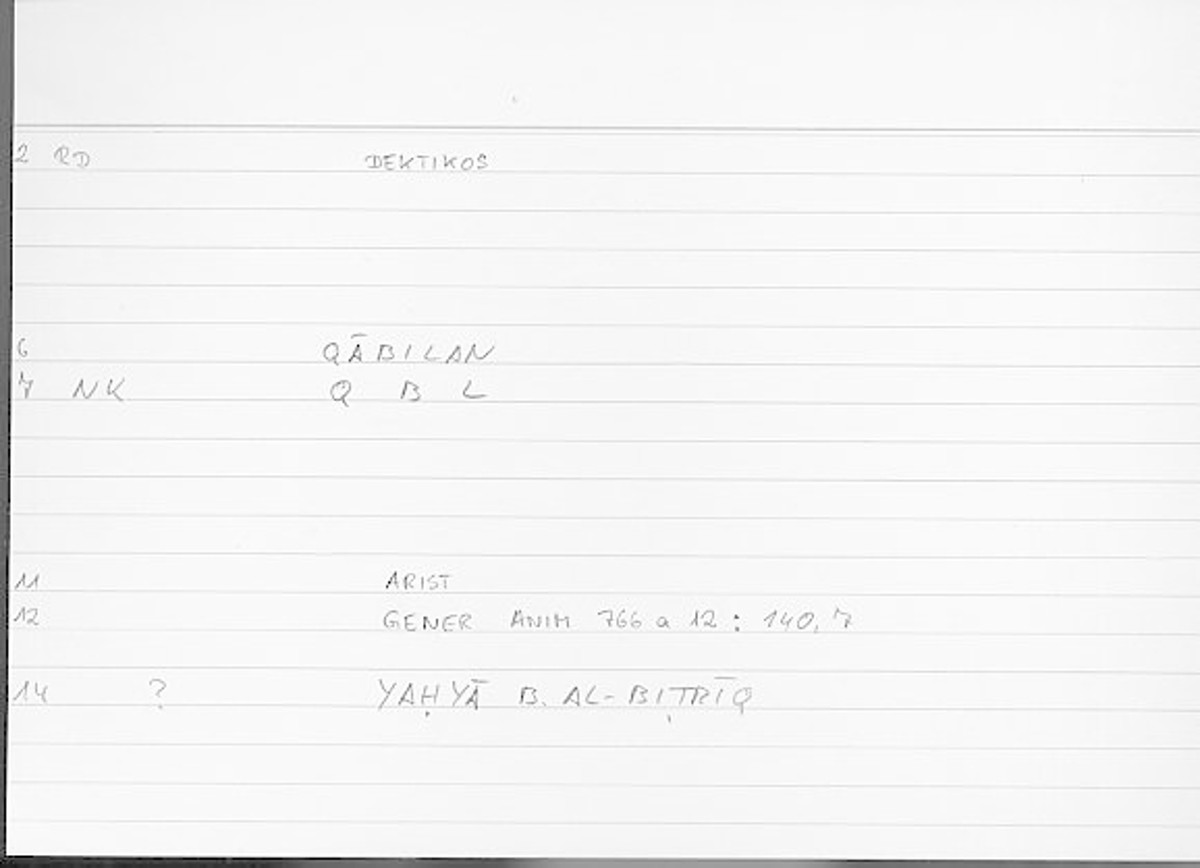 2 RD DEKTIKOS
6 QĀBILAN
7 NK Q B L
11 ARIST
12 GENER ANIM 766 a 12 : 140,7
14 ? YAḤYĀ B. AL-BIṬRĪQ